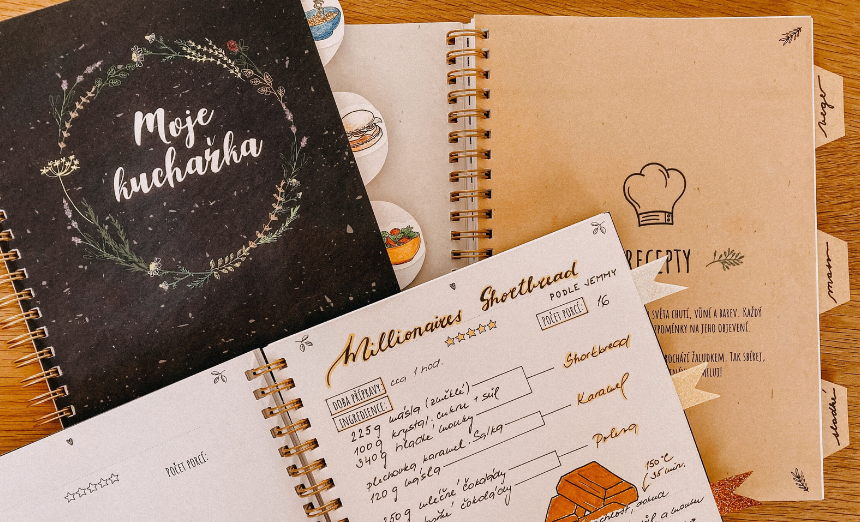 Moje
kuchařka
vege
maso
sladké
RECEPTY
SVĚTA CHUTÍ, VŮNÍ A BAREV. KAŽDÝ
POMÍNKY NA JEHO OBJEVENÍ.
OCHÁZÍ ŽALUDKEM. TAK SBÍREJ,
MILUJ!
Millionaires Shortbread
PODLE JEMMY
POČET PORCÍ: 16
DOBA PŘÍPRAVY: cca 1 hod.
INGREDIENCE:
225 g másla (změklé)
100 g krystal. cukru + sůl
340 g hladké mouky
Shortbread
plechovka karamel. Salka
120 g másla
Karamel
250 g mléčné čokolády
čokolády
Poleva
150°C
35 min.
a mouku
POČET PORCÍ: